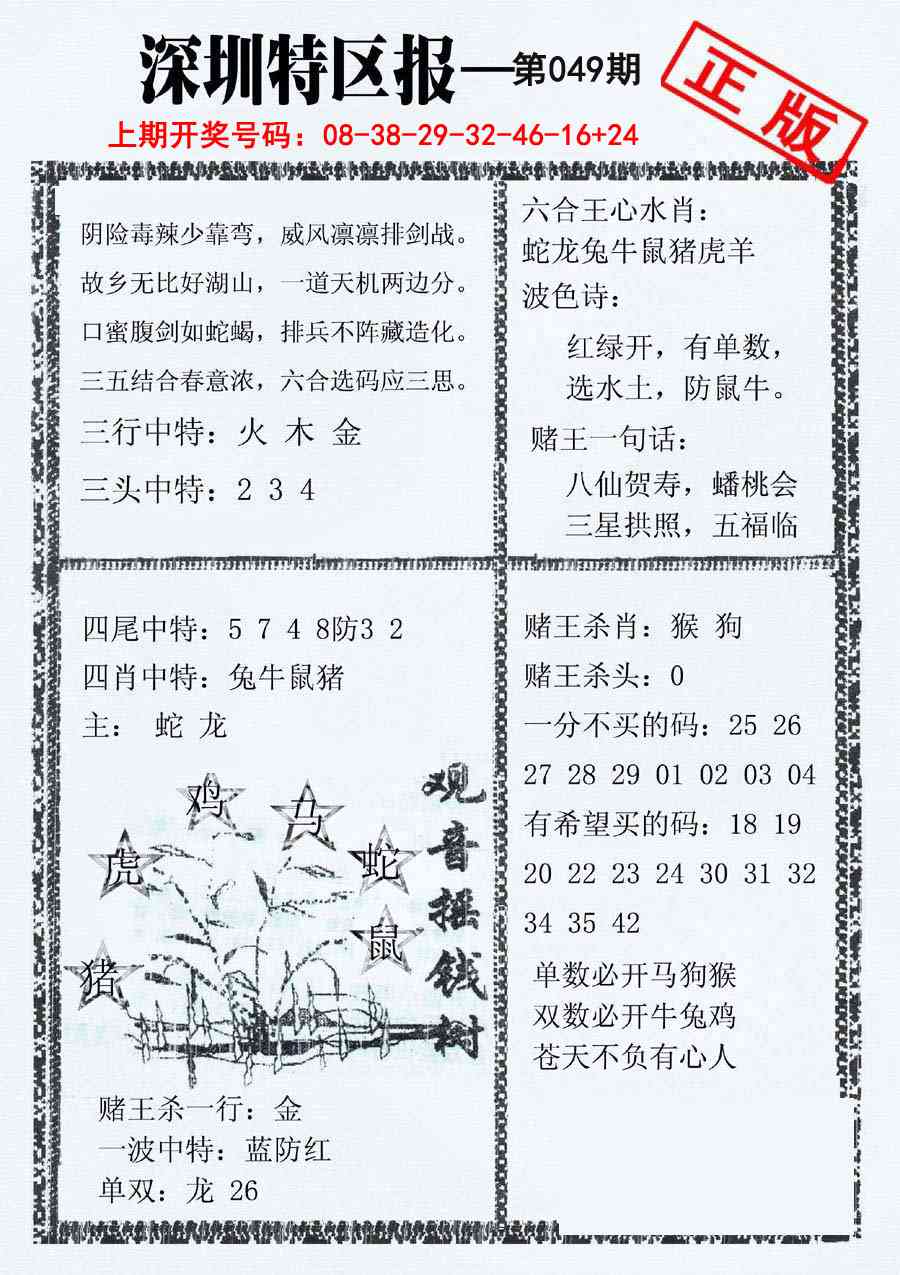 深圳特区报—第049期
正版
上期开奖号码：08-38-29-32-46-16+24
阴险毒辣少靠弯，威风凛凛排剑战。
故乡无比好湖山，一道天机两边分。
口蜜腹剑如蛇蝎，排兵不阵藏造化。
三五结合春意浓，六合选码应三思。
三行中特：火 木 金
三头中特：2 3 4
六合王心水肖：
蛇龙兔牛鼠猪虎羊
波色诗：
红绿开，有单数，
选水土，防鼠牛。
赌王一句话：
八仙贺寿，蟠桃会
三星拱照，五福临
四尾中特：5 7 4 8防3 2
四肖中特：兔牛鼠猪
主： 蛇 龙
鸡
马
虎
蛇
鼠
猪
观音摇钱树
赌王杀一行：金
一波中特：蓝防红
单双：龙 26
赌王杀肖：猴 狗
赌王杀头：0
一分不买的码：25 26
27 28 29 01 02 03 04
有希望买的码：18 19
20 22 23 24 30 31 32
34 35 42
单数必开马狗猴
双数必开牛兔鸡
苍天不负有心人